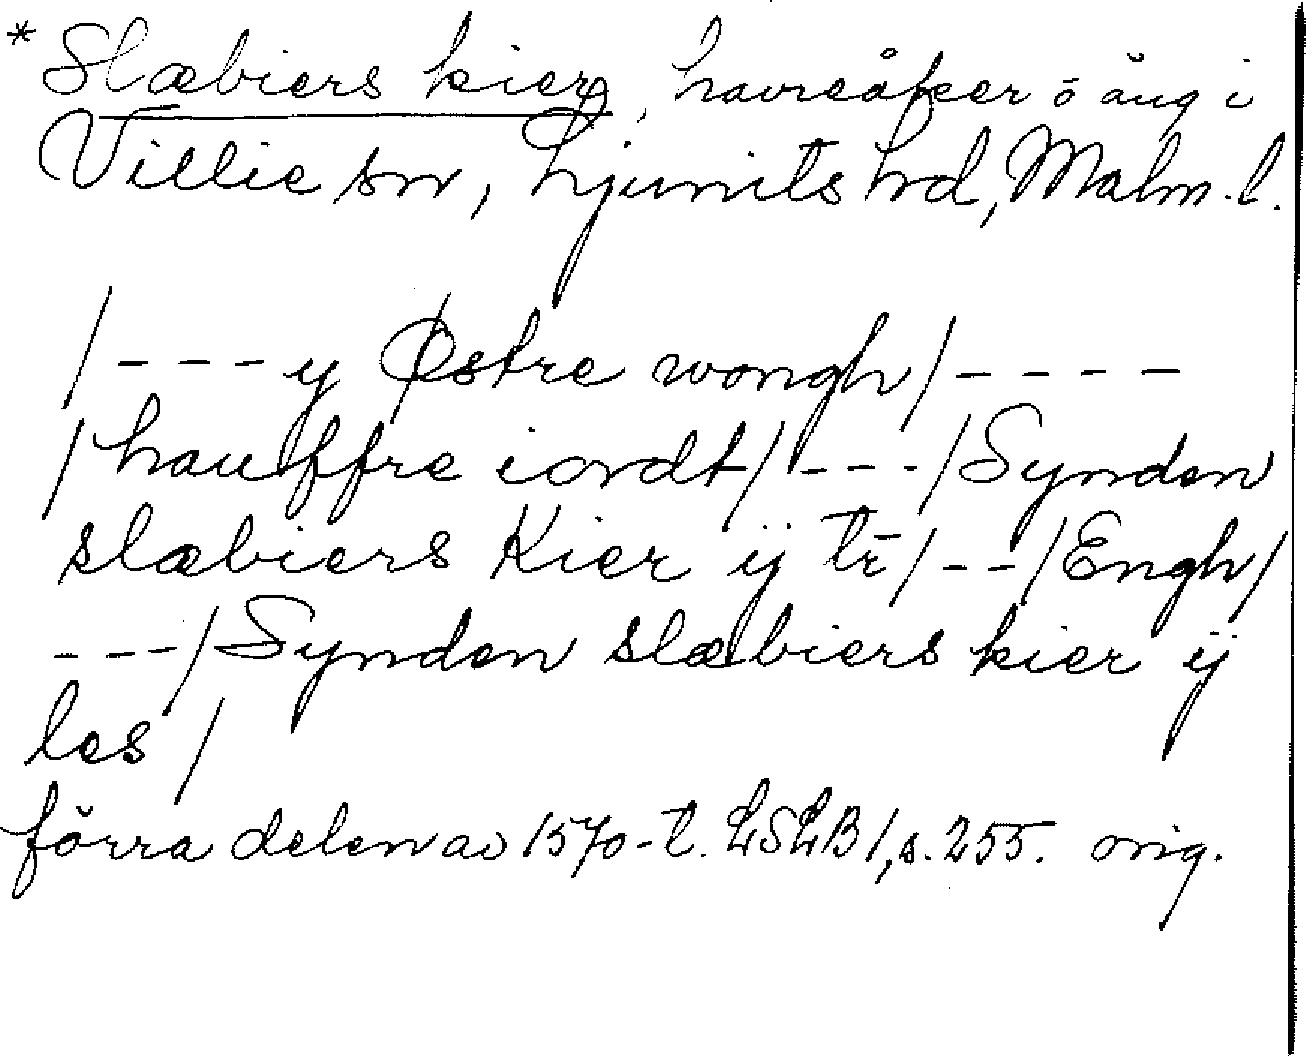 * Slæbiers kier, havreåker o äng i
Villie sn, Ljunits hd, Malm. l.
/---y Østre wongh/----
/hauffre iordt/---/Synden
slæbiers Kier ij tr̄/--/Engh/
---/Synden slæbiers kier ij
les/
förra delen av 1570-t. LSLB 1, s. 255. orig.